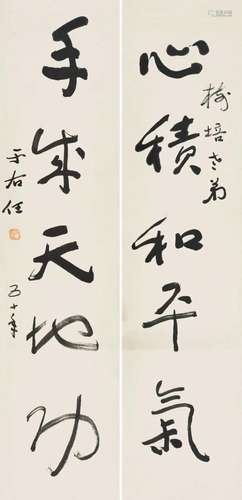 心積和平氣
培老弟
手成天地功
于右任
五十年